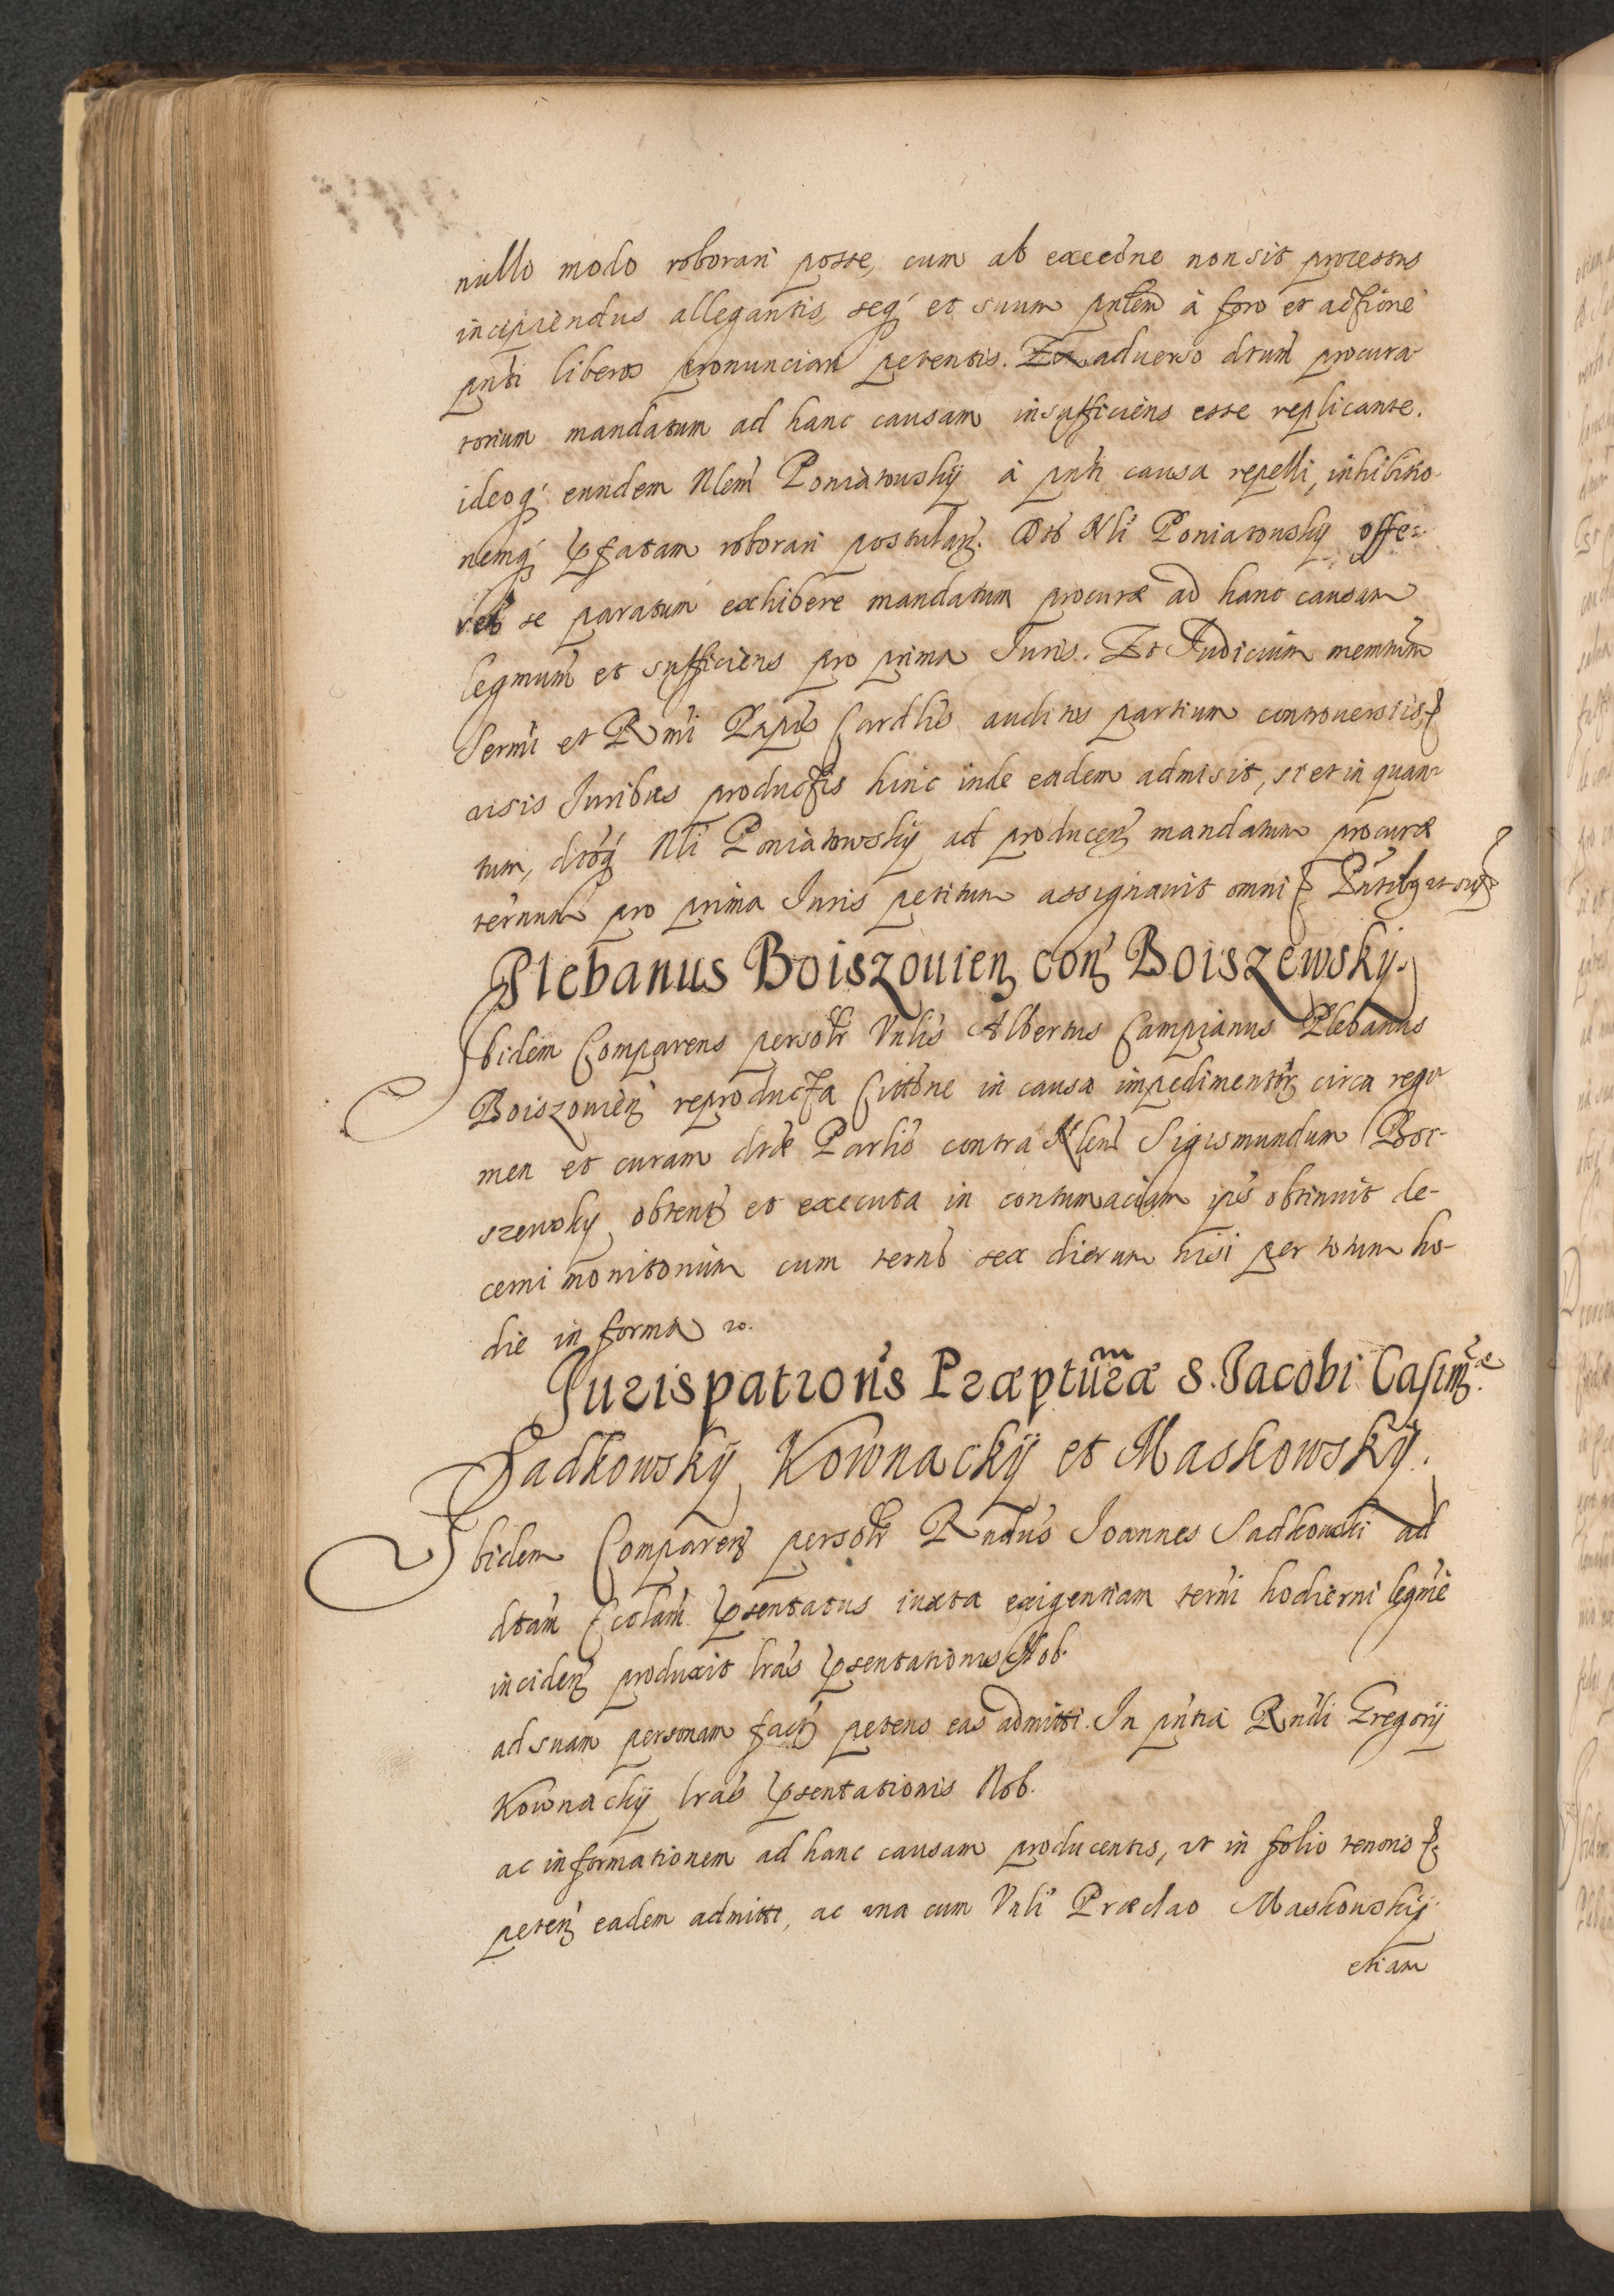 nullo modo roborari posse, cum ab exeečne non sit processus
incipiendus allegantis, seq́ et suum pnlem̃ à foro et actione
pnti liberos pronunciari petentis. Ex aduerso dtum̃ procura-
torium mandatum ad hanc causam insufficiens esse replicante.
ideoq́ eundem Nlem̃ Poniatowskÿ à pnti causa repelli, inhibitio-
nemq́ pfatam roborari postulaň. Dtõ Nli Poniatowskÿ offe-
rět se paratum exhibere mandatum procuræ ad hanc causam
legmum̃ et sufficiens pro prima Juris. Et Judicium memtum̃
Sermĩ et Rmĩ Prpis Cardlis auditis partium controuersiis,
uisis Juribus productis hinc inde eadem admisit, si et in quan-
tum, dtoq́ Nli Poniatowskÿ ad producen̄ mandatum procuræ
ternum̃ pro prima Juris petitum assignauit omni
Plebanus Boiszouien̄ con̄ Boiszewskÿ.
Ibidem Comparens persolr̃ Vnlis Albertus Campianus Plebanus
Boiszouien̄ reproducta Cittõne in causa impedimentor̄ circa regi-
men et curam dtæ Parlis contra Nlem̃ Sigismundum Boi-
szewskÿ obten̄ et executa in contumaciam ips̃ obtinuit de-
cerni monitorium cum ternõ sex dierum nisi per totum ho-
die in forma ꝛc.
Jurispatronũs Præpturæ S. Jacobi Casim̄.æ
Sadkowskÿ, Kownackÿ et Maskowskÿ.
Ibidem Comparen̄ persolr̃ Rndus Joannes Sadkowski ad
dtam̃ Ecclam̃ p̃sentatus iuxta exigentiam terni hodierni legmẽ
inciden̄ produxit lras̃ p̃sentationis Nob.
ad suam personam fact̄ petens eas admitti. In pntia Rndi Gregorÿ
Kownackÿ lras̃ p̃sentationis Nob.
ac informationem ad hanc causam producentis, ut in folio tenoris
peten̄ eadem admitti, ac una cum Vnli Præclao Maskowskÿ
etiam